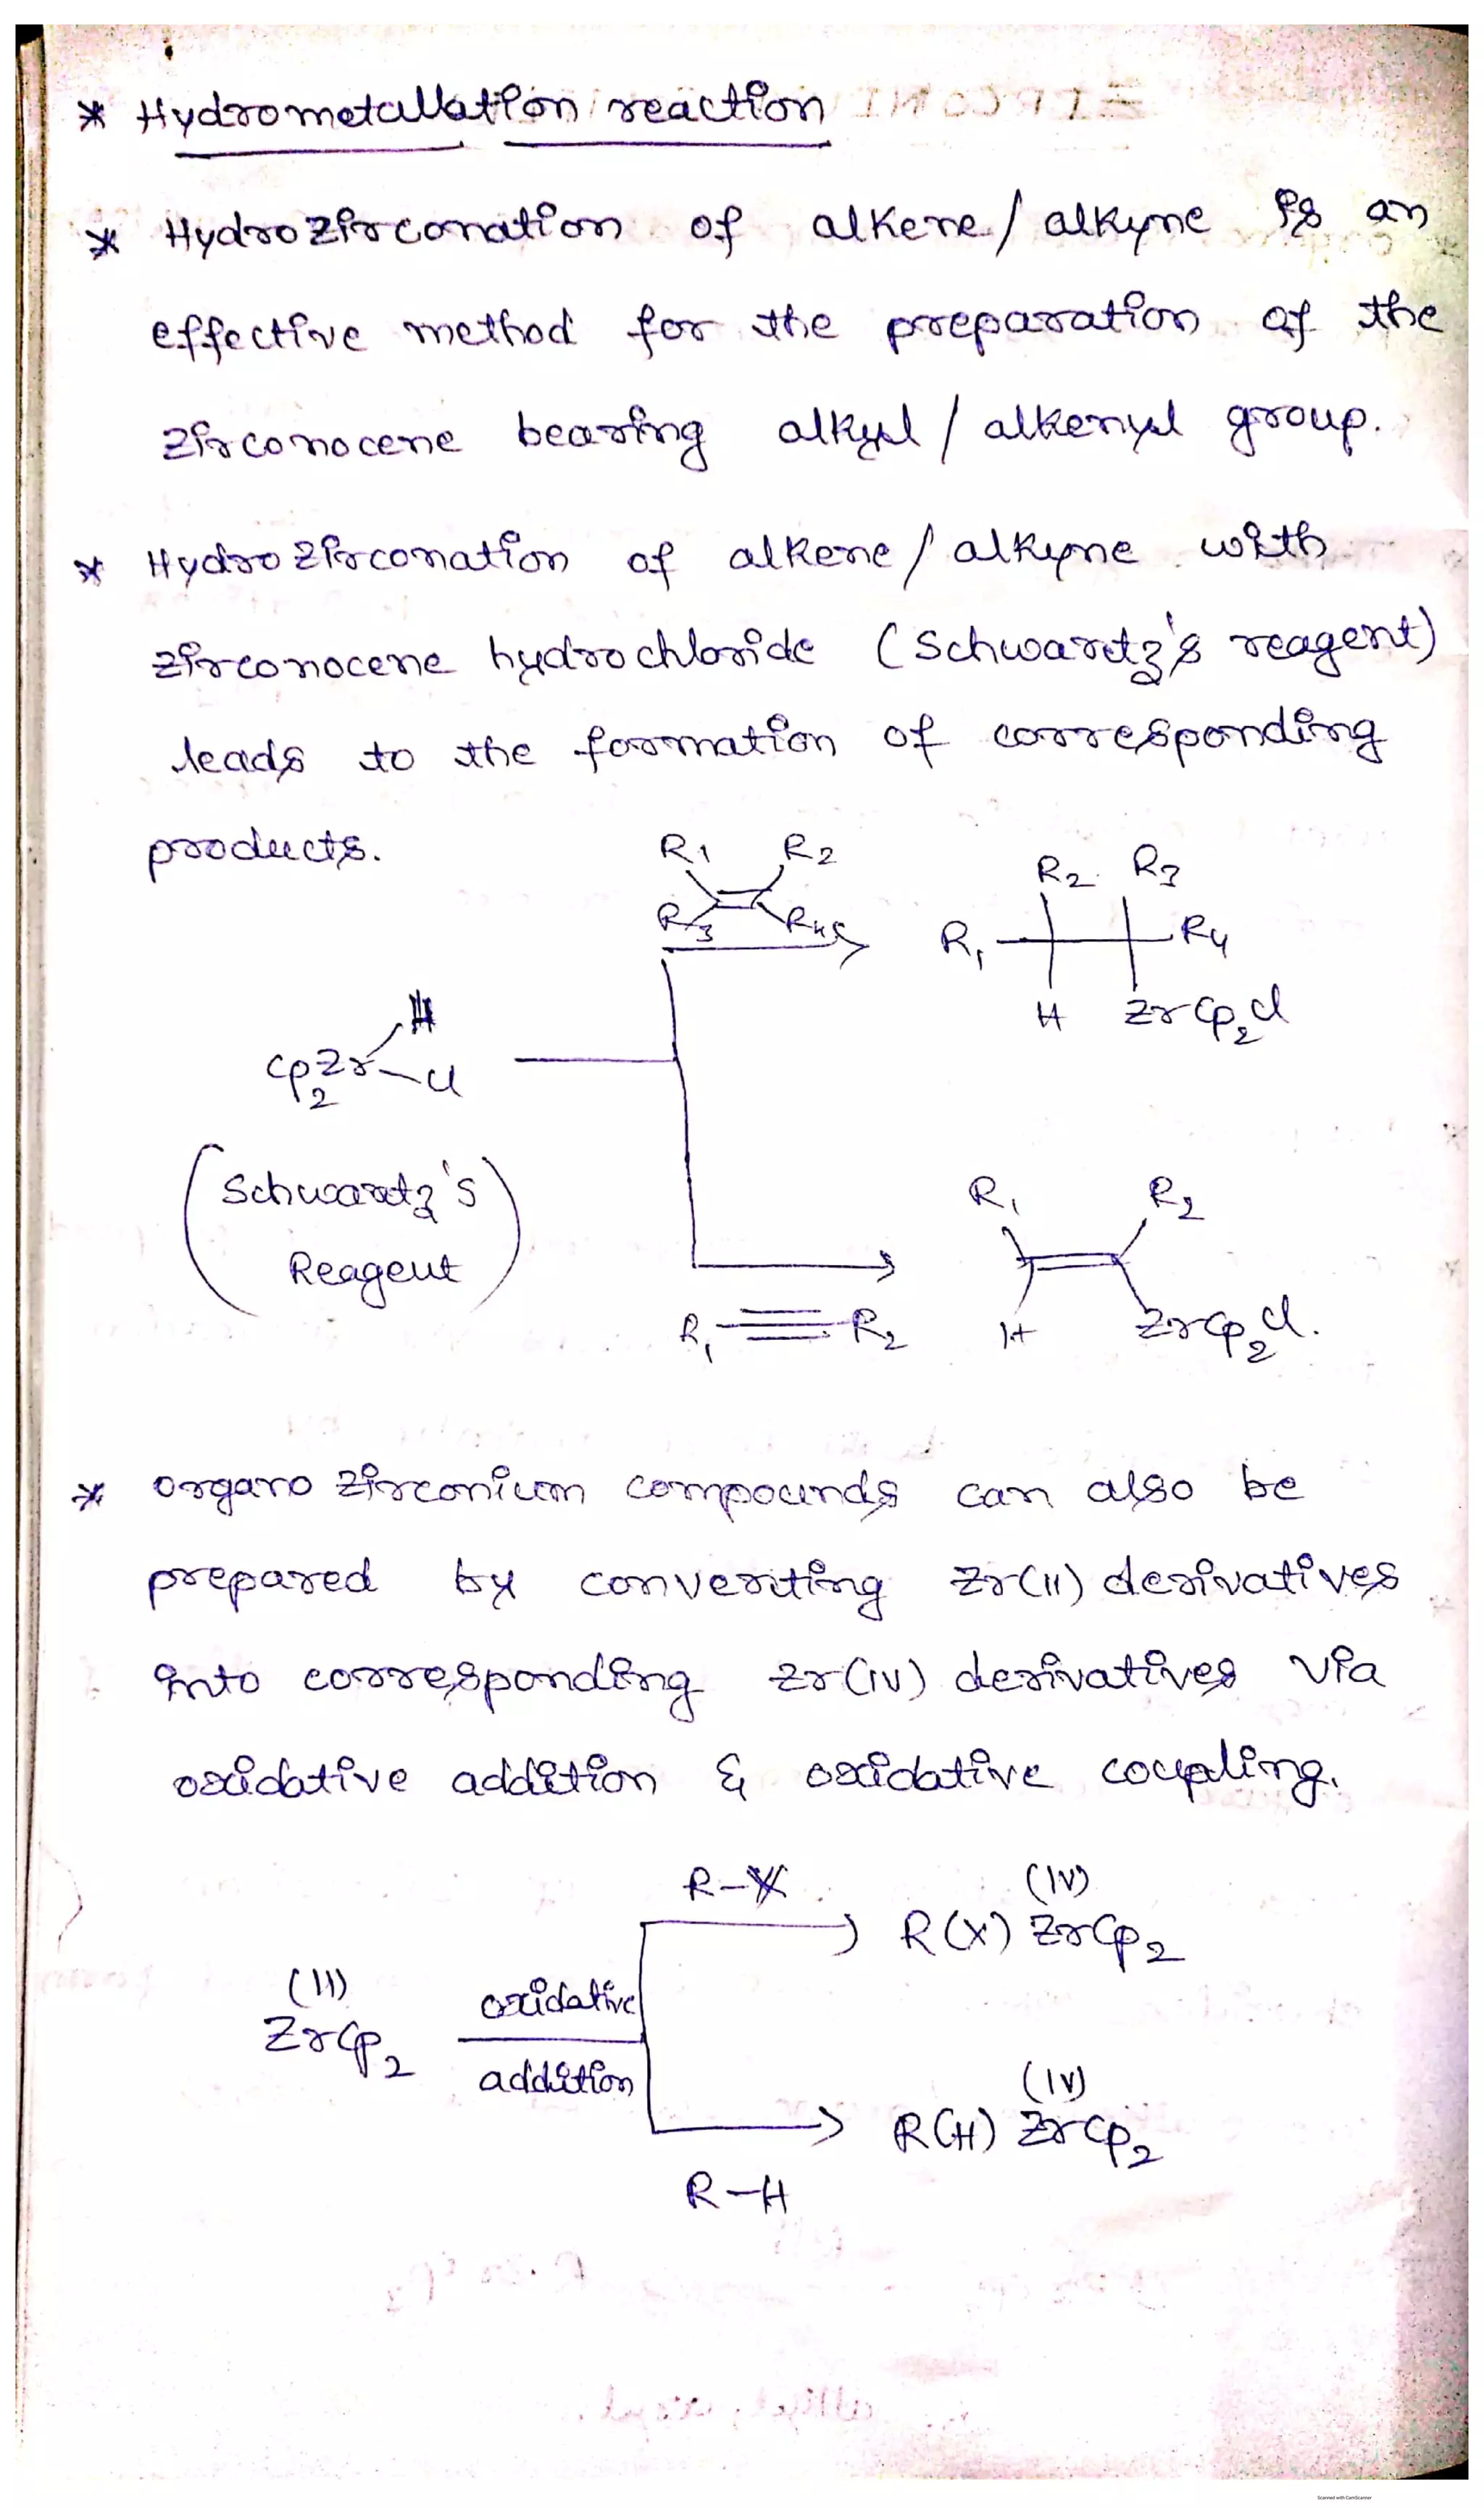 * Hydrometallation reaction
* Hydrozirconation of alkene / alkyne is an
effective method for the preparation of the
zirconocene bearing alkyl / alkenyl group.
* Hydrozirconation of alkene / alkyne with
zirconocene hydrochloride (Schwartz's reagent)
leads to the formation of corresponding
products.
R1 R2
R3 R4
R2 R3
R1 R4
H ZrCp2Cl
H
Cp2Zr
Cl
(Schwartz's
Reagent)
R1 R2
R1 ≡ R2
H ZrCp2Cl.
* Organo zirconium compounds can also be
prepared by converting Zr(II) derivatives
into corresponding Zr(IV) derivatives via
oxidative addition & oxidative coupling.
R-X
(IV)
R(X) ZrCp2
(II)
ZrCp2
oxidative
addition
(IV)
R(H) ZrCp2
R-H
Scanned with CamScanner